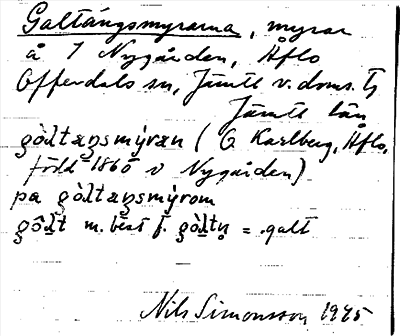 Galtängsmyrarna, myrar
å 7 Nygården, Åflo
Offerdals sn, Jämtl v. doms. tj
Jämtl län
gòltæŋsmỳræn (G. Karlberg, Åflo,
född 1860 i Nygården)
pa gòltæŋsmỳrom
gôlt m. best f. gòltn̥ = galt
Nils Simonsson 1945